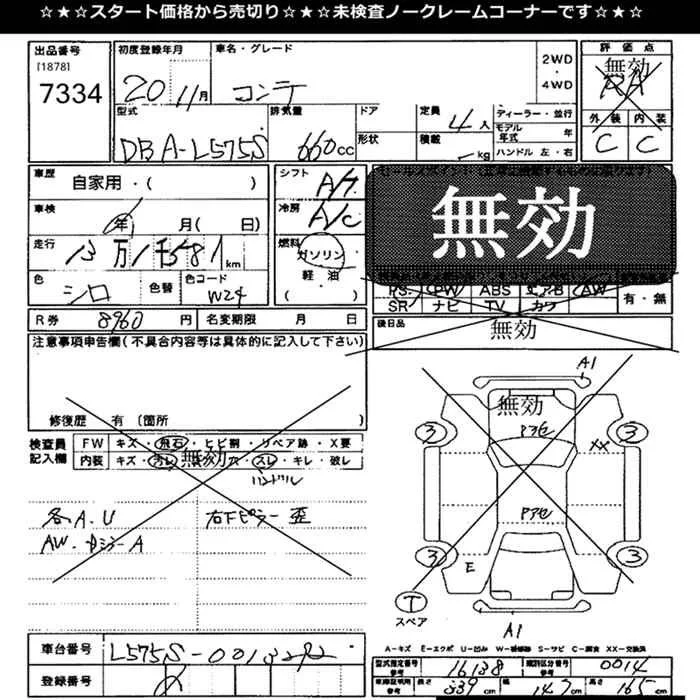 ☆★☆★スタート価格から売切り☆★☆★未検査ノークレームコーナーです☆★☆
出品番号
[1878]
7334
初度登録年月
20 11月
車名・グレード
コンテ
2WD
・
4WD
評価点
無効
RA
外装 内装
C C
型式
DBA-L575S
排気量
660cc
ドア
形状
定員
4人
積載
kg
ディーラー・並行
モデル年式 年
ハンドル 左・右
車歴
自家用・( )
車検
年 月( 日)
走行
13万1千581km
色
シロ
色替
色コード
W24
シフト
A/T
冷房
A/C
燃料
ガソリン
軽・油
( )
無効
PS PW ABS エアB AW
SR ナビ TV カワ
有・無
後日品
無効
R券 8960円
名変期限 月 日
注意事項申告欄(不具合内容等は具体的に記入して下さい)
修復歴 有 (箇所 )
検査員記入欄
FW キズ・飛石・ヒビ割・リペア跡・X要
内装 キズ・汚レ・無効穴・スレ・キレ・破レ
ハンドル
各A.U 右Fピラー歪
AW.カラーA
A1
無効
Pアセ
3 3
XX
Pアセ
3 3
E
T
スペア
A1
A-キズ E-エクボ U-凹み W-補修跡 S-サビ C-腐食 XX-交換済
車台番号
L575S-0013292
登録番号
型式指定番号 参考 16138
類別区分番号 参考 0014
車庫証明用 参考 長さ 339cm 幅 147cm 高さ 165cm